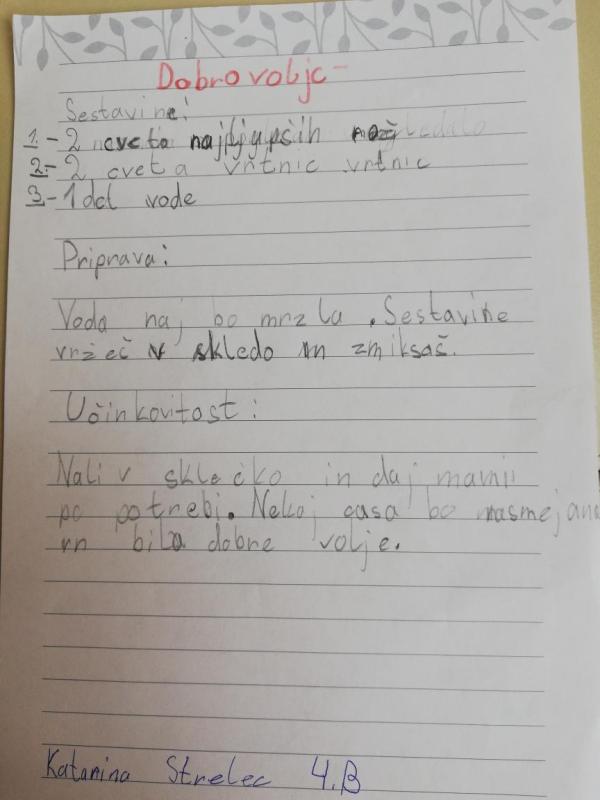 Dobrovoljc-
Sestavine:
1.- 2 cveta najljupših rož
2.- 2 cveta vrtnic vrtnic
3.- 1 dcl vode
Priprava:
Voda naj bo mrzla. Sestavine
vržeč v skledo in zmiksaš.
Učinkovitost:
Nali v sklečko in daj mamii
po potrebi. Nekaj casa bo nasmejana
in bila dobre volje.
Katarina Strelec 4.B